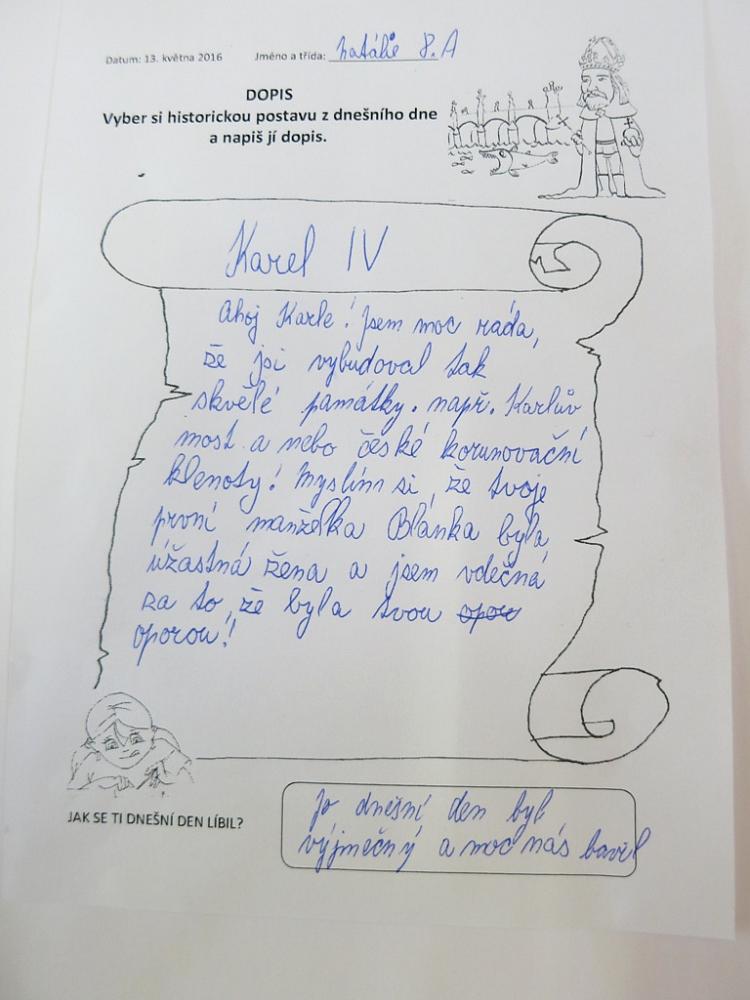 Datum: 13. května 2016 Jméno a třída: Natálie 8.A
DOPIS
Vyber si historickou postavu z dnešního dne
a napiš jí dopis.
Karel IV
Ahoj Karle! Jsem moc ráda,
že jsi vybudoval tak
skvělé památky. např. Karlův
most a nebo české korunovační
klenoty! Myslím si, že tvoje
první manželka Blanka byla
úžastná žena a jsem vděčná
za to, že byla tvou opor
oporou!
JAK SE TI DNEŠNÍ DEN LÍBIL?
Jo dnešní den byl
výjmečný a moc nás bavil